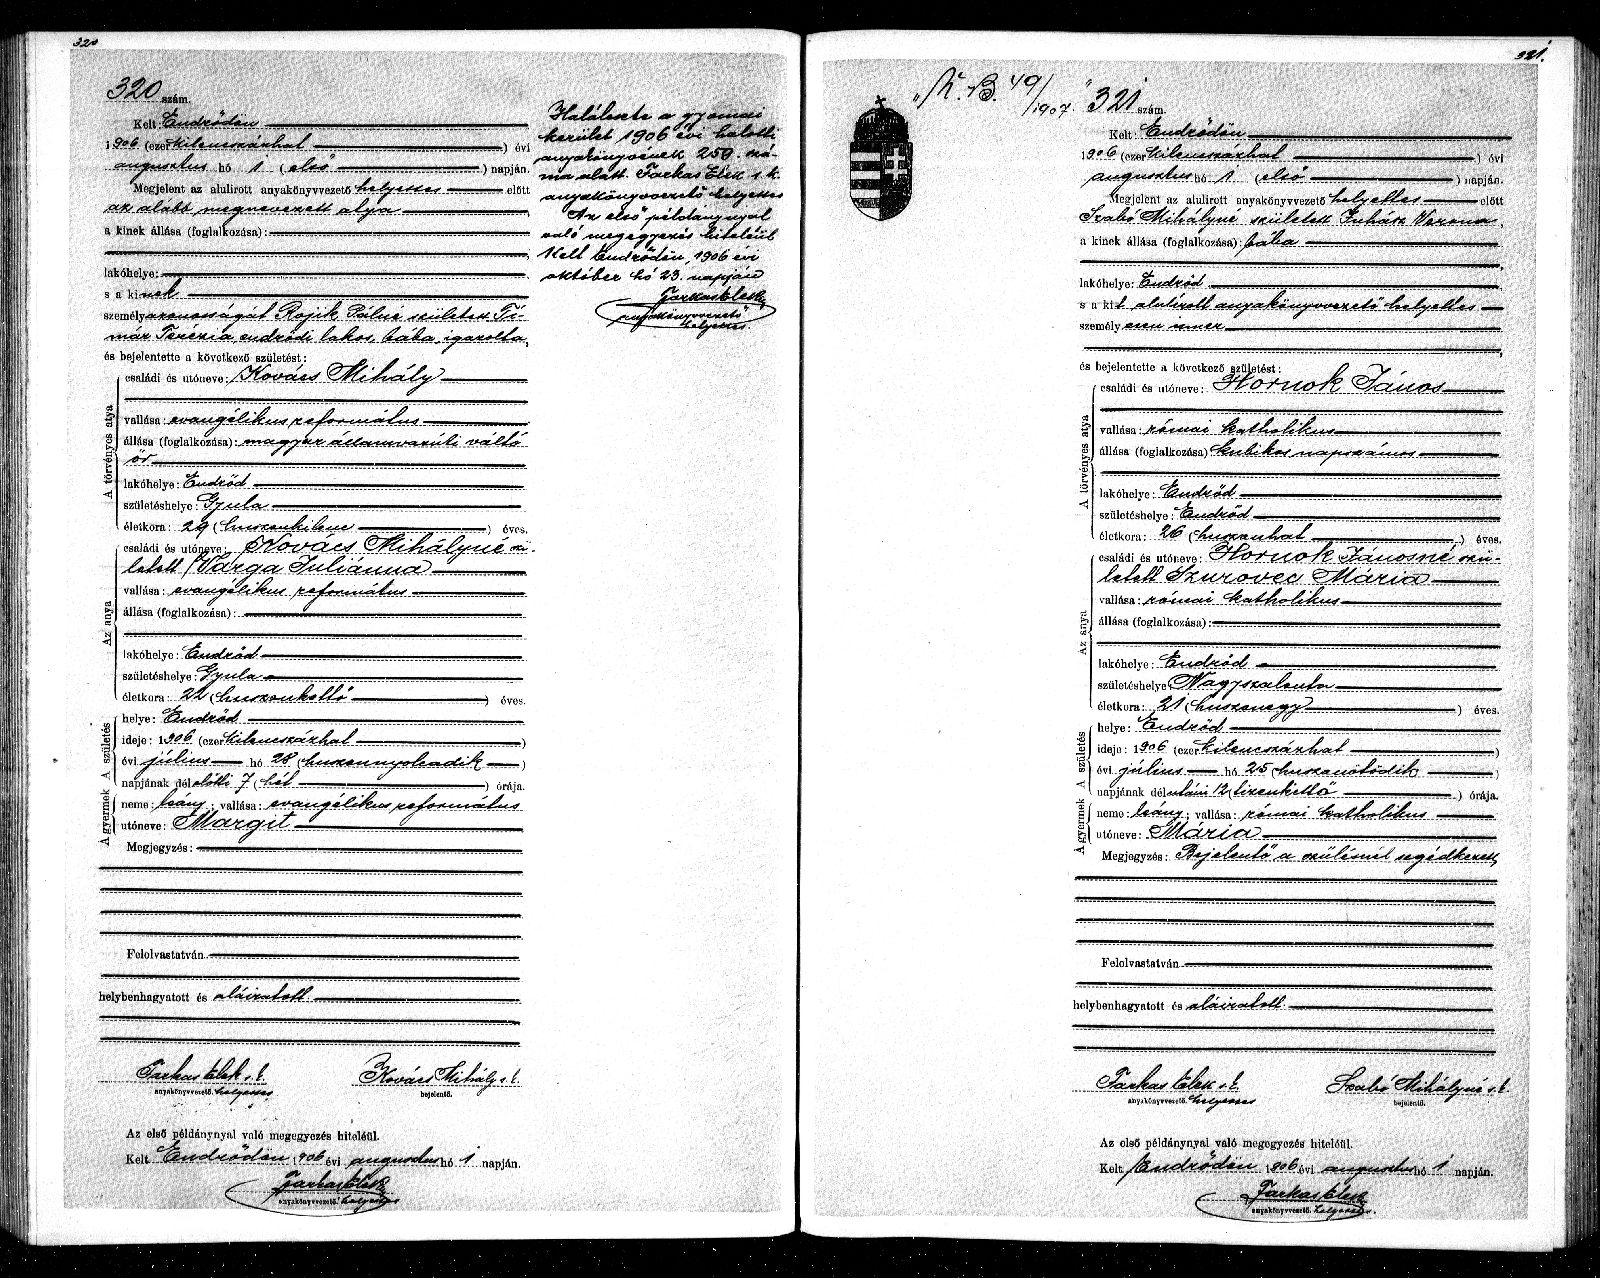 320
320 szám.
Kelt: Endrődön
1906 (ezer kilencszázhat) évi
augusztus hó 1 (első) napján.
Megjelent az alulirott anyakönyvvezető helyettes előtt
az alább megnevezett atya
a kinek állása (foglalkozása):
lakóhelye:
s a kinek
személyazonosságát Rojik Pálné született Tí-
már Terézia, endrődi lakos, bába, igazolta,
és bejelentette a következő születést:
A törvényes atya
családi és utóneve: Kovács Mihály
vallása: evangélikus református
állása (foglalkozása): magyar államvasúti váltó
őr
lakóhelye: Endrőd
születéshelye: Gyula
életkora: 29 (huszonkilenc) éves.
Az anya
családi és utóneve: Kovács Mihályné szü-
letett Varga Juliánna
vallása: evangélikus református
állása (foglalkozása):
lakóhelye: Endrőd
születéshelye: Gyula
életkora: 22 (huszonkettő) éves.
A gyermek A születés
helye: Endrőd
ideje: 1906 (ezer kilencszázhat)
évi július hó 28 (huszonnyolcadik)
napjának délelőtti 7 (hét) órája.
neme: leány; vallása: evangélikus református
utóneve: Margit
Megjegyzés:
Felolvastatván
helybenhagyatott és aláiratott
Farkas Elek s. k. Kovács Mihály s. k.
anyakönyvvezető. helyettes bejelentő.
Az első példánynyal való megegyezés hiteléül.
Kelt Endrődön 1906 évi augusztus hó 1 napján.
Farkas Elek
anyakönyvvezető. helyettes
Halálesete a gyomai
kerület 1906 évi halotti
anyakönyvének 250. szá-
ma alatt. Farkas Elek s. k.
anyakönyvvezető helyettes
Az első példánynyal
való megegyezés hiteléül
Kelt Endrődön, 1906 évi
október hó 23. napján
Farkas Elek
anyakönyvvezető
helyettes
321.
K. B. 49/1907.
321 szám.
Kelt: Endrődön
1906 (ezer kilencszázhat) évi
augusztus hó 1 (első) napján.
Megjelent az alulirott anyakönyvvezető helyettes előtt
Szabó Mihályné született Juhász Verona,
a kinek állása (foglalkozása): bába
lakóhelye: Endrőd
s a kit alulírott anyakönyvvezető helyettes
személyesen ismer
és bejelentette a következő születést:
A törvényes atya
családi és utóneve: Hornok János
vallása: római katholikus
állása (foglalkozása) kubikos napszámos
lakóhelye: Endrőd
születéshelye: Endrőd
életkora: 26 (huszonhat) éves.
Az anya
családi és utóneve: Hornok Jánosné szü-
letett Szurovec Mária
vallása: római katholikus
állása (foglalkozása):
lakóhelye: Endrőd
születéshelye: Nagyszalonta
életkora: 21 (huszonegy) éves.
A gyermek A születés
helye: Endrőd
ideje: 1906 (ezer kilencszázhat)
évi július hó 25 (huszonötödik)
napjának délutáni 12 (tizenkettő) órája.
neme: leány; vallása: római katholikus
utóneve: Mária
Megjegyzés: Bejelentő a szülésnél segédkezett,
Felolvastatván
helybenhagyatott és aláiratott
Farkas Elek s. k. Szabó Mihályné s. k.
anyakönyvvezető. helyettes bejelentő.
Az első példánynyal való megegyezés hiteléül.
Kelt Endrődön 1906 évi augusztus hó 1 napján.
Farkas Elek
anyakönyvvezető. helyettes.